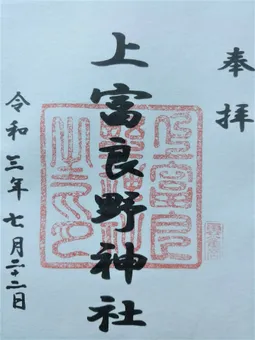 奉拝
上富良野神社
令和三年七月二十二日